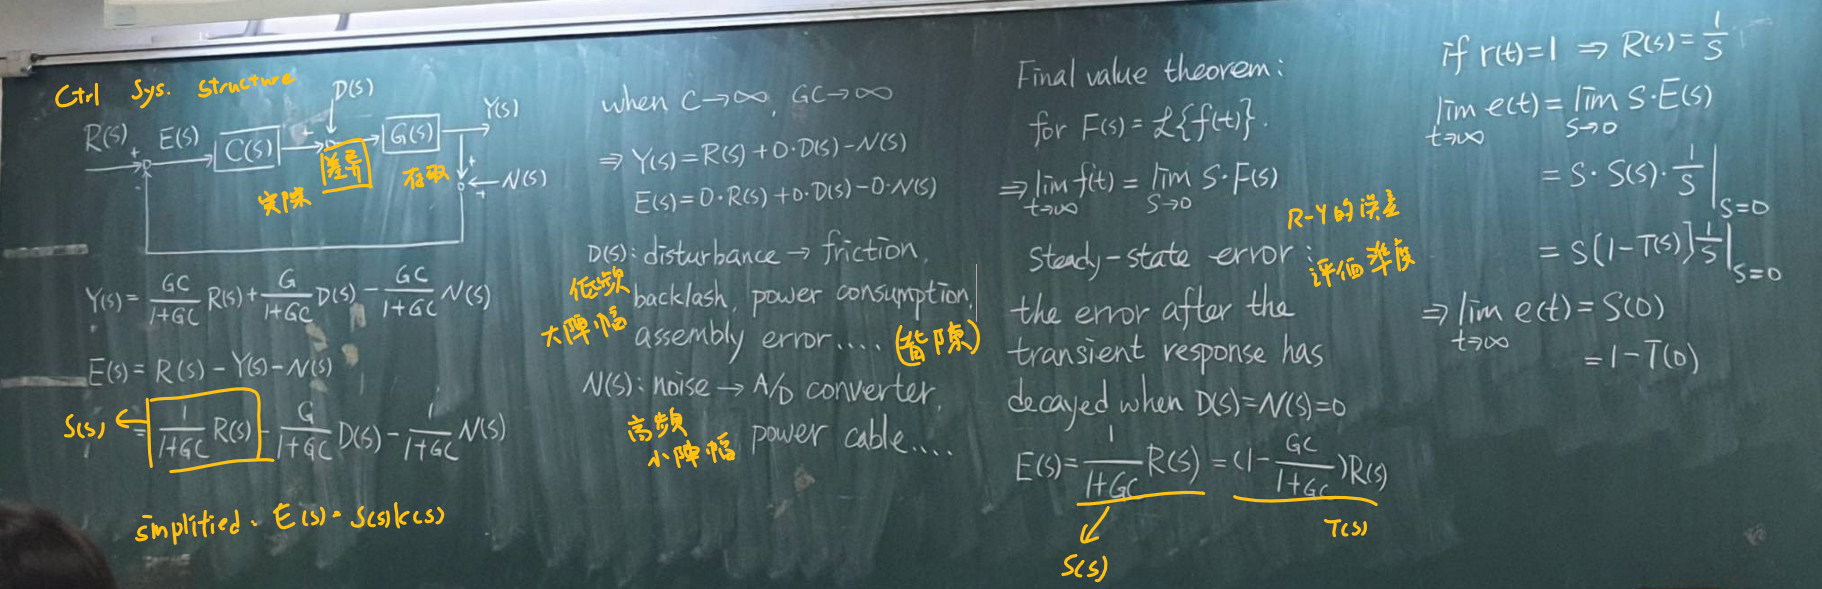 Ctrl Sys. structure
D(s)
R(s) + E(s) C(s) + G(s) Y(s)
差異
実際
存取
+
+
N(s)
-
Y(s) = GC/1+GC R(s) + G/1+GC D(s) - GC/1+GC N(s)
E(s) = R(s) - Y(s) - N(s)
S(s) ← = 1/1+GC R(s) - G/1+GC D(s) - 1/1+GC N(s)
simplified: E(s) = S(s)R(s)
when C→∞, GC→∞
⇒ Y(s) = R(s) + 0·D(s) - N(s)
E(s) = 0·R(s) + 0·D(s) - 0·N(s)
D(s): disturbance → friction,
低頻
backlash, power consumption,
大陣幅
assembly error.... (背隙)
N(s): noise → A/D converter,
高頻
小陣幅
power cable....
Final value theorem:
for F(s) = ℒ{f(t)}.
⇒ lim t→∞ f(t) = lim s→0 S·F(s)
R-Y的誤差
steady-state error:
評価準度
the error after the
transient response has
decayed when D(s)=N(s)=0
E(s) = 1/1+GC R(s) = (1 - GC/1+GC)R(s)
S(s)
T(s)
if r(t)=1 ⇒ R(s) = 1/s
lim t→∞ e(t) = lim s→0 S·E(s)
= S·S(s)·1/s | s=0
= S[1-T(s)]1/s | s=0
⇒ lim t→∞ e(t) = S(0)
= 1-T(0)